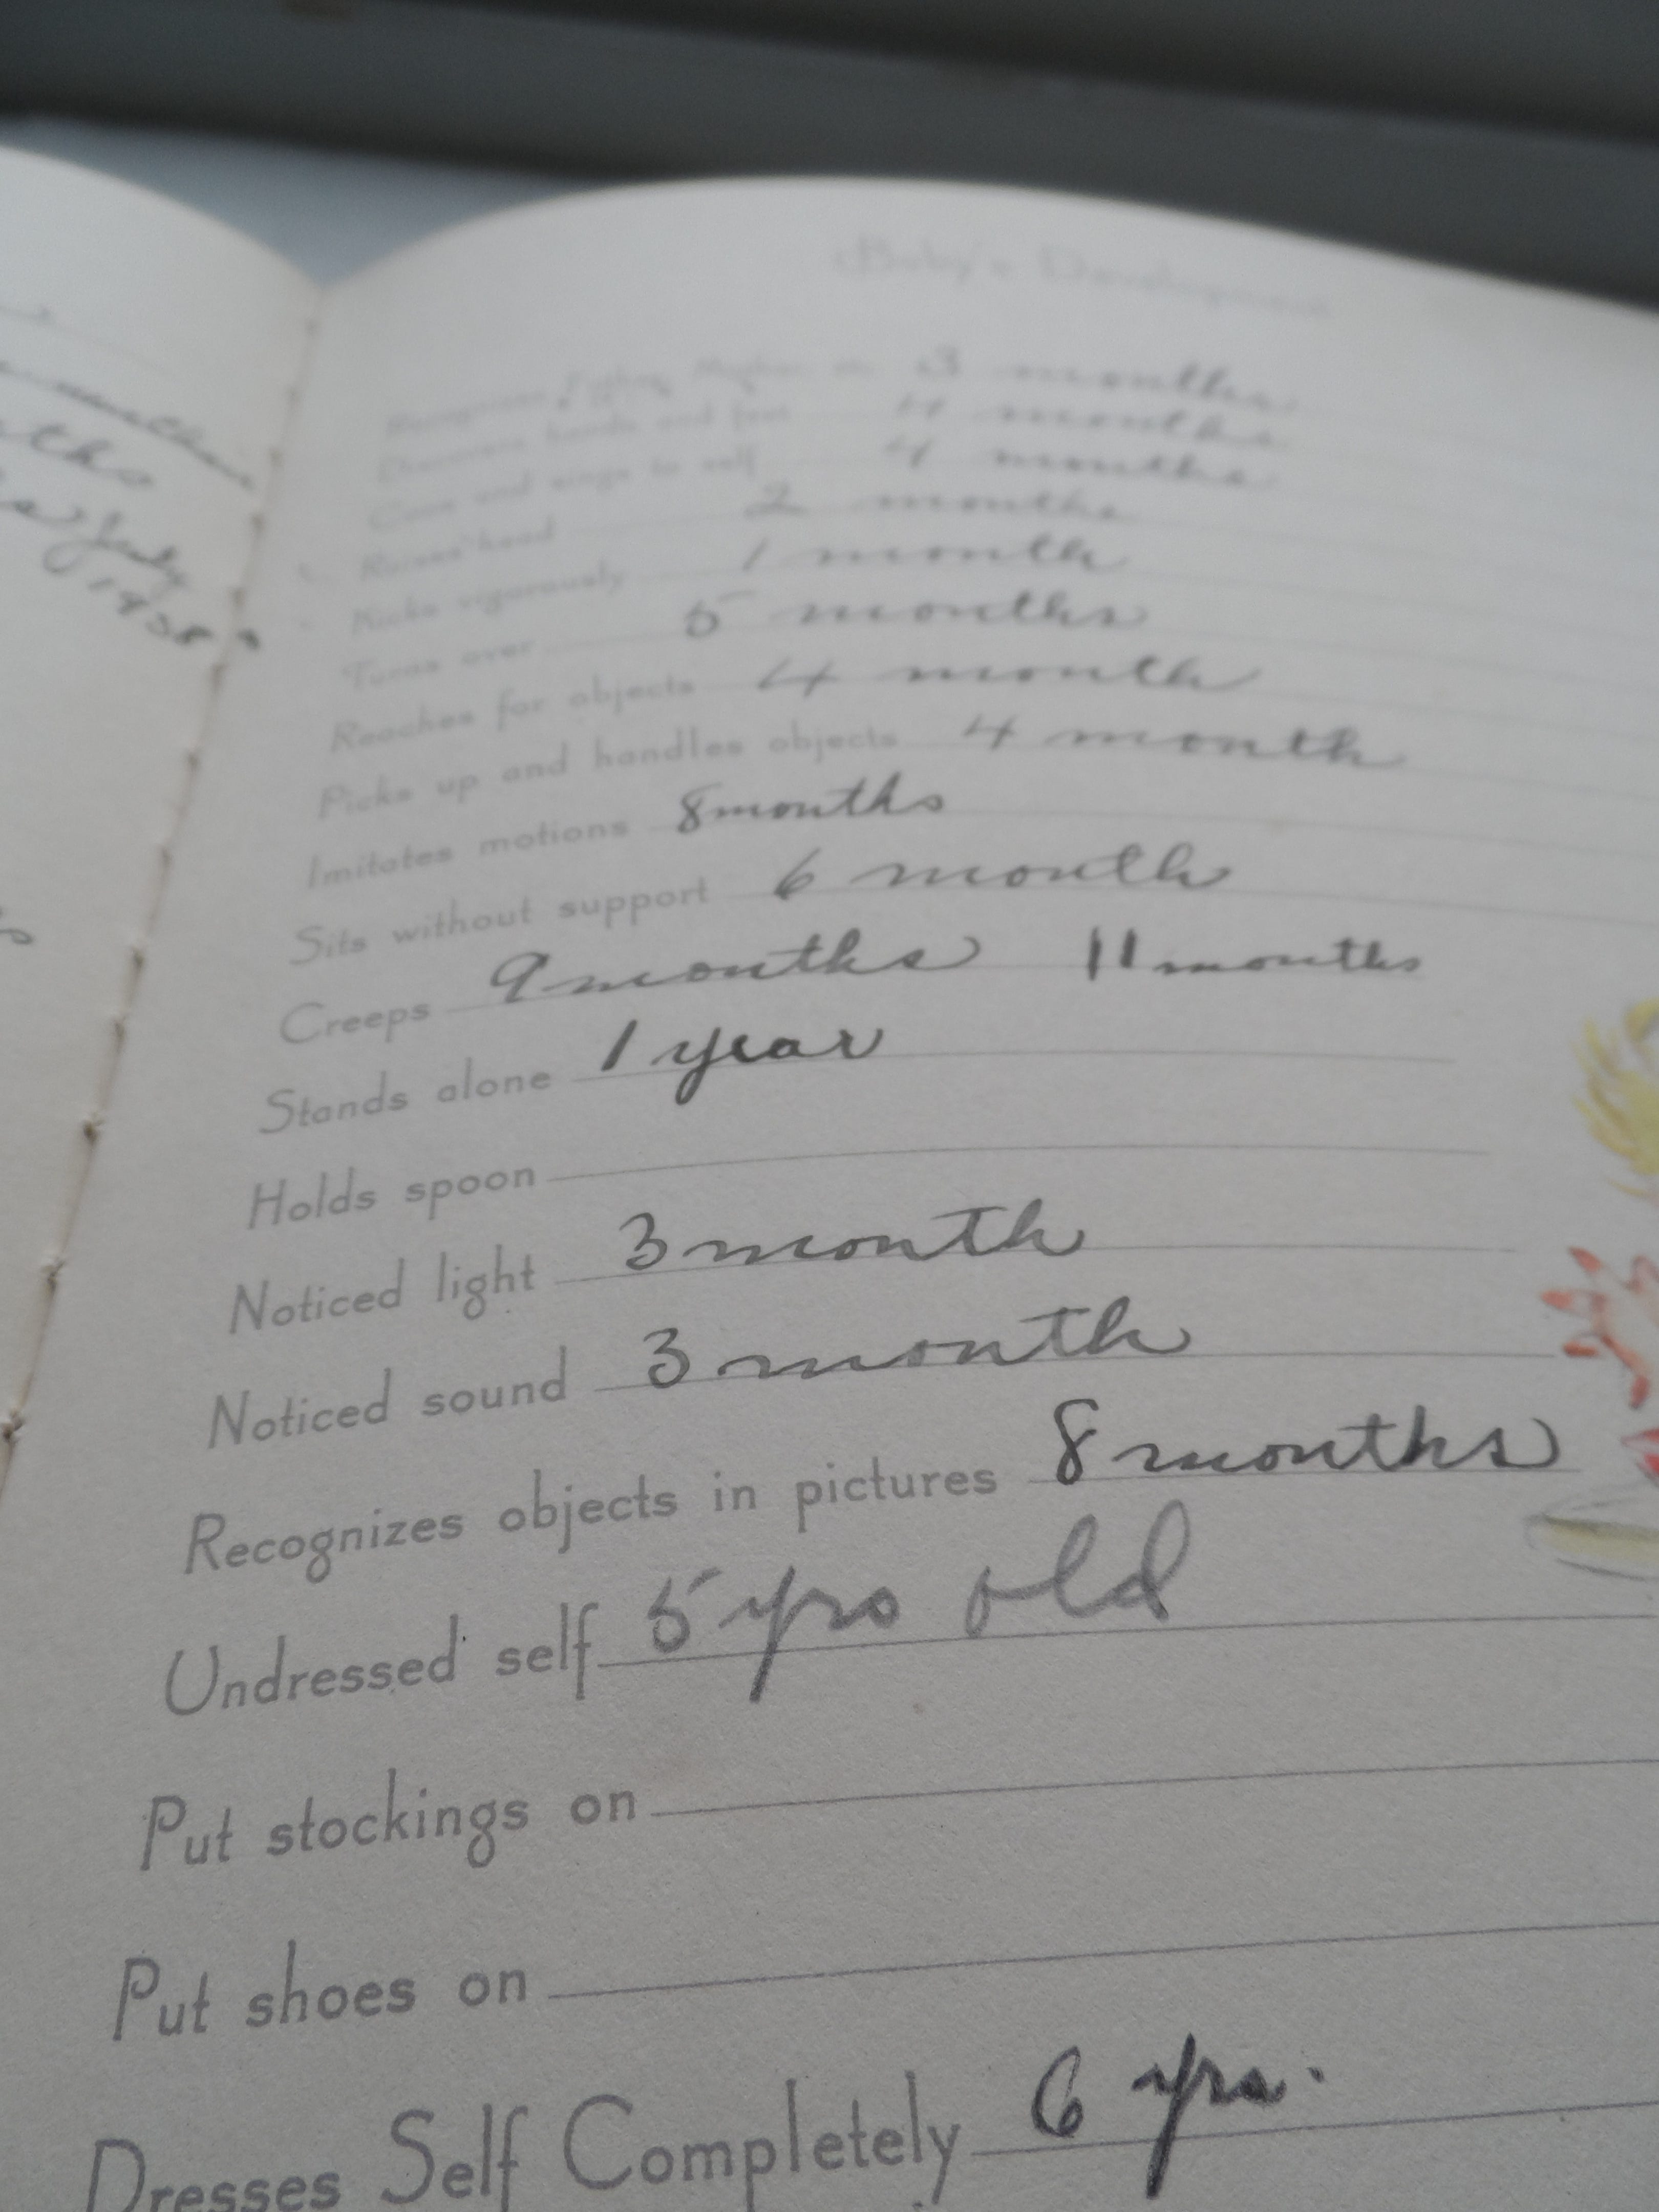 months
July
1938
Baby's Development
Recognizes Father, Mother 3 months
Discovers hands and feet 4 months
Coos and sings to self 4 months
Raises head 2 months
Kicks vigorously 1 month
Turns over 5 months
Reaches for objects 4 month
Picks up and handles objects 4 month
Imitates motions 8 months
Sits without support 6 month
Creeps 9 months 11 months
Stands alone 1 year
Holds spoon
Noticed light 3 month
Noticed sound 3 month
Recognizes objects in pictures 8 months
Undressed self 5 yrs old
Put stockings on
Put shoes on
Dresses Self Completely 6 yrs.